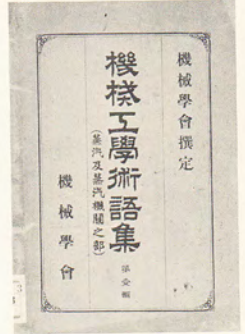 機械學會撰定
機械工學術語集
(蒸汽及蒸汽機關之部)
第壹輯
機械學會